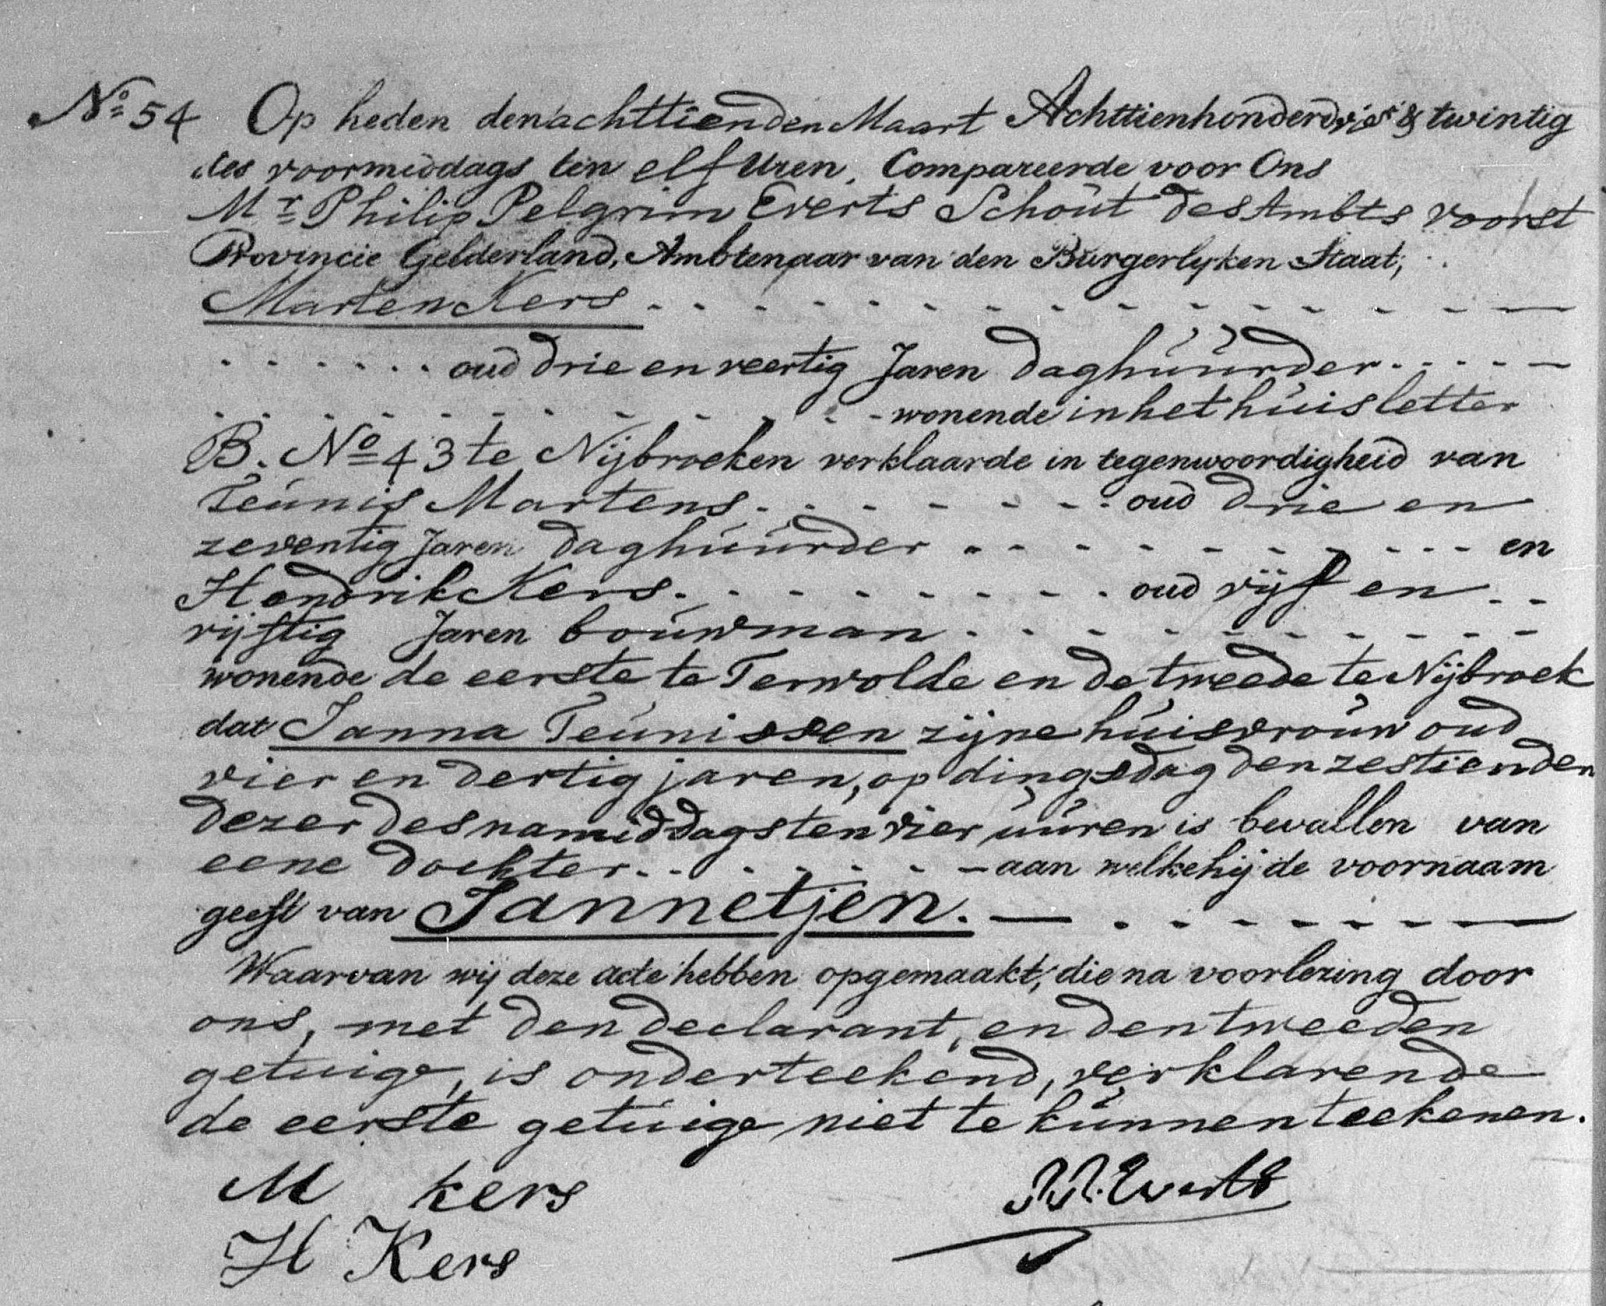 No 54 Op heden den achttienden Maart Achttienhonderd vier & twintig
des voormiddags ten elf Uren, Compareerde voor Ons
Mr Philip Pelgrim Everts Schout des Ambts Voorst
Provincie Gelderland, Ambtenaar van den Burgerlyken Staat,
Marten Kers
oud drie en veertig Jaren daghuurder
wonende in het huis letter
B. No 43 te Nijbroeken verklaarde in tegenwoordigheid van
Teunis Martens oud drie en
zeventig Jaren daghuurder en
Hendrik Kers oud vijf en
vijftig Jaren bouwman
wonende de eerste te Terwolde en de tweede te Nijbroek
dat Janna Teunissen zijne huisvrouw oud
vier en dertig jaren, op dingsdag den zestienden
dezer des namiddags ten vier uuren is bevallen van
eene dochter aan welke hij de voornaam
geeft van Jannetjen.
Waarvan wij deze acte hebben opgemaakt, die na voorlezing door
ons, met den declarant, en den tweeden
getuige, is onderteekend, verklarende
de eerste getuige niet te kunnen teekenen.
M kers
Everts
H Kers